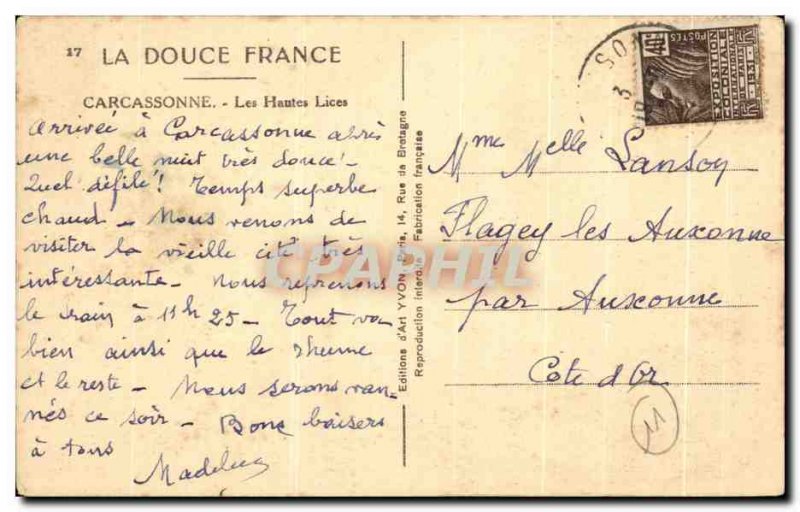 17 LA DOUCE FRANCE
CARCASSONNE. - Les Hautes Lices
Arrivée à Carcassonne après
une belle nuit très douce! -
Quel défilé! Temps superbe
chaud - Nous venons de
visiter la vieille cité très
intéressante - nous reprenons
le train à 11h 25 - Tout va
bien ainsi que le rhume
et le reste - Nous serons van-
nés ce soir - Bons baisers
à tous
Editions d'Art YVON, Paris, 14, Rue de Bretagne
Reproduction interdite Fabrication française
POSTES
40c
EXPOSITION
COLONIALE
INTERNATIONALE
PARIS
1931
Mme Melle Lansoy
Flagey les Auxonne
par Auxonne
Côte d'Or
11
CPAPHIL